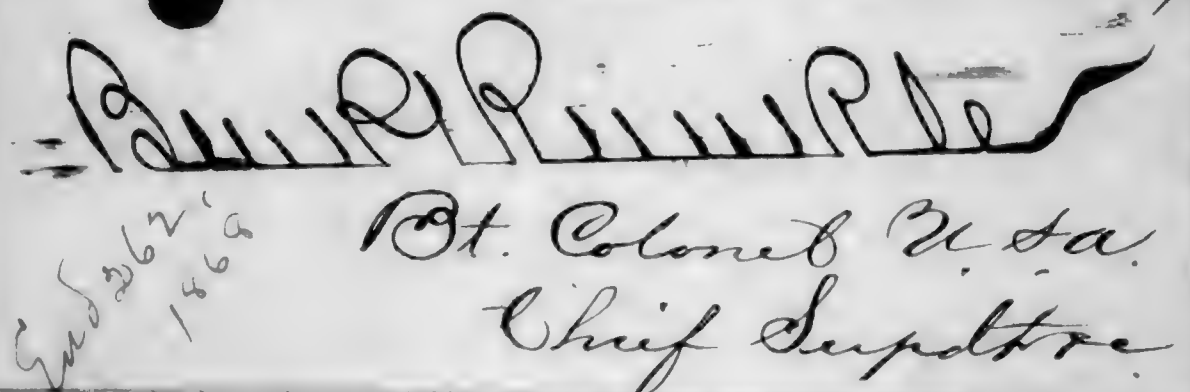 Ben P Runkle
Bt. Colonel U.S.A.
Chief Supdt &c
End 262
1868